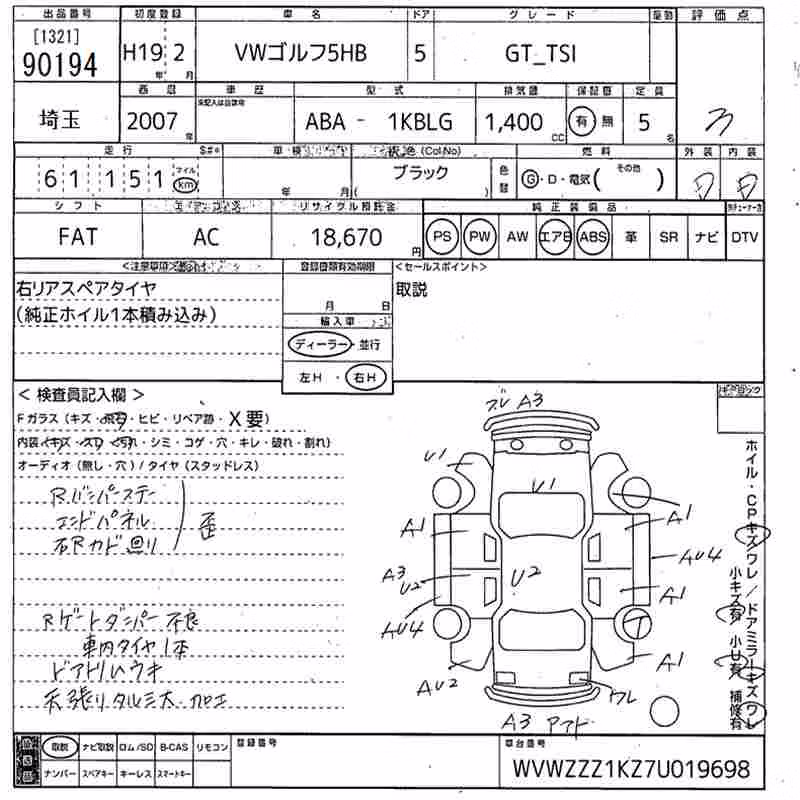 出品番号 初度登録 車名 ドア グレード 駆動 評価点
[1321]
90194 H19 2 VWゴルフ5HB 5 GT_TSI
年 月
西暦 車歴 型式 排気量 保証書 定員
未記入は自家用
埼玉 2007年 ABA - 1KBLG 1,400cc 有 無 5名
走行 色(Col No) 燃料 外装 内装
61 151 マイル km 年 月 ブラック 色替 G・D・電気( その他 )
シフト エアコン リサイクル預託金 純正装備品
FAT AC 18,670円 PS PW AW エアB ABS 革 SR ナビ DTV
<注意事項> 登録書類有効期限 <セールスポイント>
右リアスペアタイヤ 取説
(純正ホイル1本積み込み) 月 日
輸入車
ディーラー・並行
左H・右H
<検査員記入欄>
Fガラス(キズ・飛石・ヒビ・リペア跡・X要)
内装(キズ・スレ・汚れ・シミ・コゲ・穴・キレ・破れ・割れ)
オーディオ(無し・穴)/タイヤ(スタッドレス)
Rバンパーステー
エンドパネル 歪
右Rカド廻り
Rゲートダンパー不良
車内タイヤ1本
ドアトリムウキ
天張りタルミ大・加工
A3
U1
U1
A1
A1
A3
U2
U2
AU4
A1
AU4
A1
AU2
ワレ
A3
ホイル・CPキズワレ/ドアミラーキズワレ
小キズ有 小U有 補修有
取説 ナビ取説 ロム/SD B-CAS リモコン 登録番号 車台番号
ナンバー スペアキー キーレス スマートキー WVWZZZ1KZ7U019698